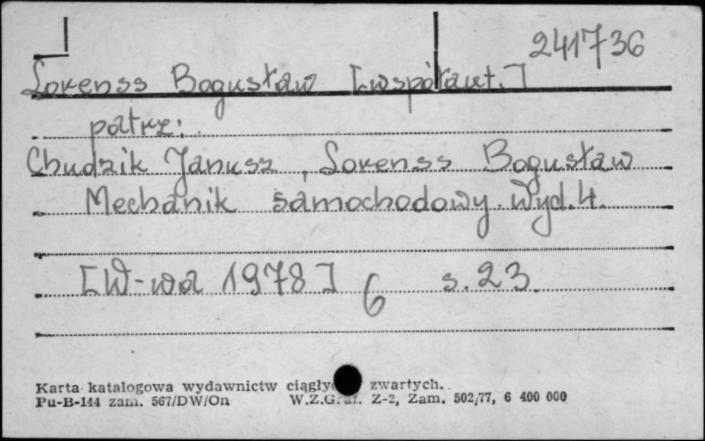 241736
Lorenss Bogusław [współaut.]
patrz:
Chudzik Janusz, Lorenss Bogusław
Mechanik samochodowy. Wyd. 4.
[W-wa 1978] 6 s. 23.
Karta katalogowa wydawnictw zwartych.
Pu-B-144 zam. 567/DW/On W.Z.Graf. Z-2, Zam. 502/77, 6 400 000